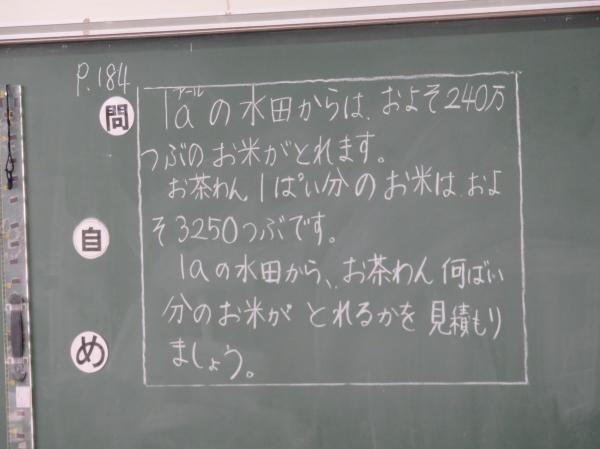 P.184
問
アール
1aの水田からは、およそ240万
つぶのお米がとれます。
お茶わん1ぱい分のお米は、およ
そ3250つぶです。
自
1aの水田から、お茶わん何ばい
分のお米が とれるかを 見積もり
ましょう。
め